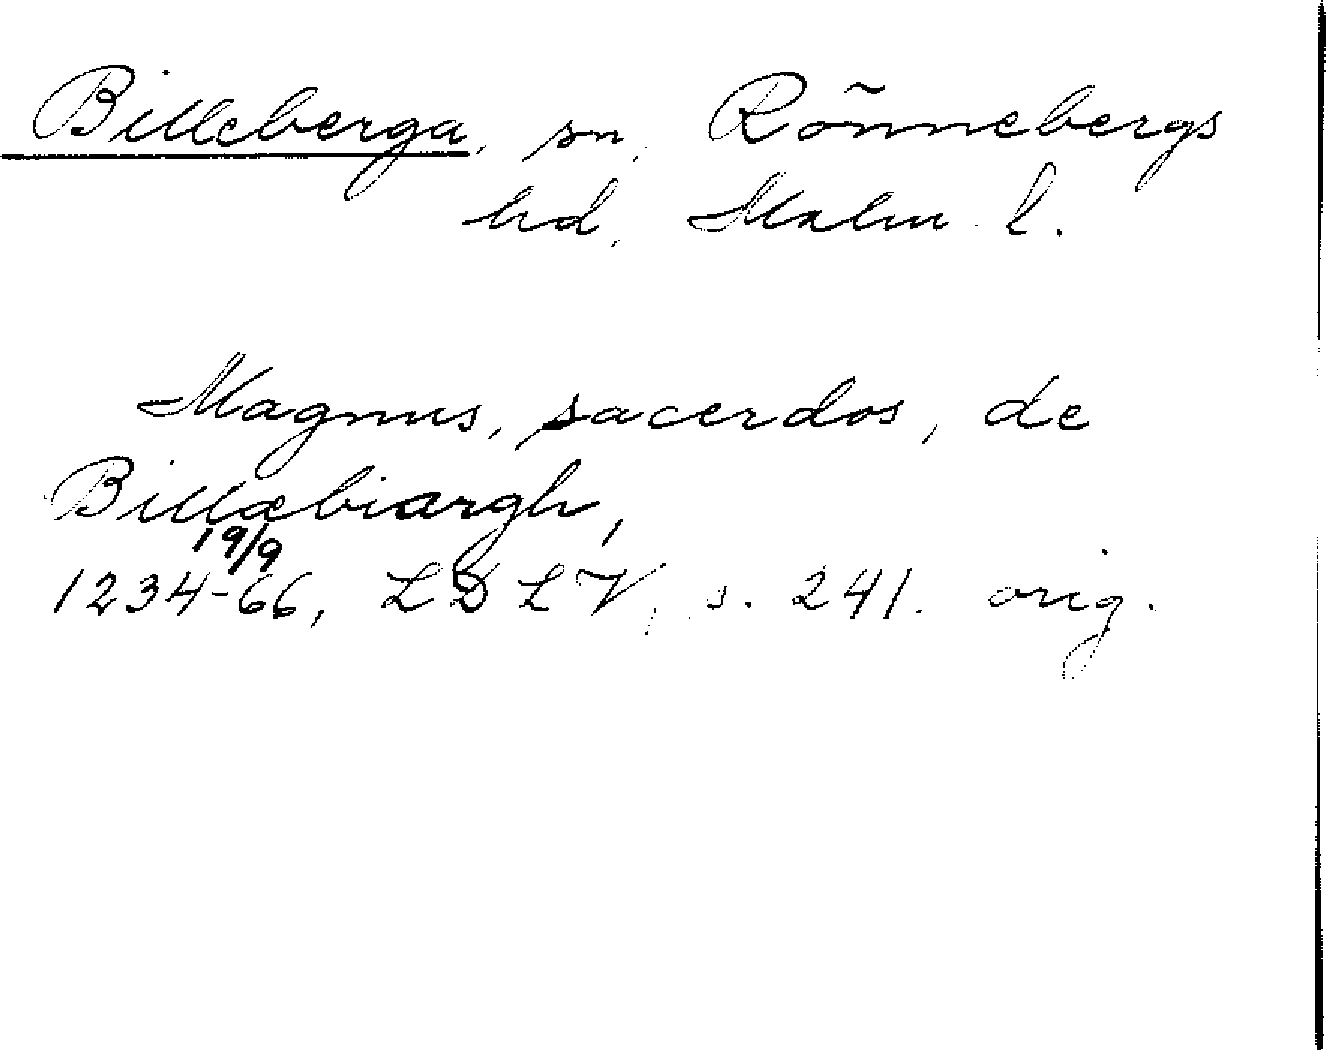 Billeberga, sn, Rönnebergs
hd, Malm. l.
Magnus, sacerdos, de
Billæbiargh,
19/9
1234-66, LDLV, s. 241. orig.